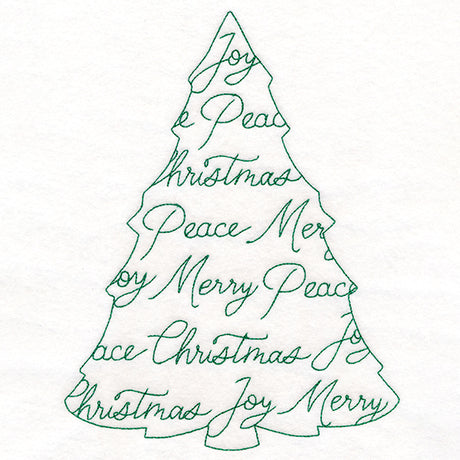 Joy
e Peac
hristmas
Peace Mer
oy Merry Peace
ace Christmas Jo
hristmas Joy Merry